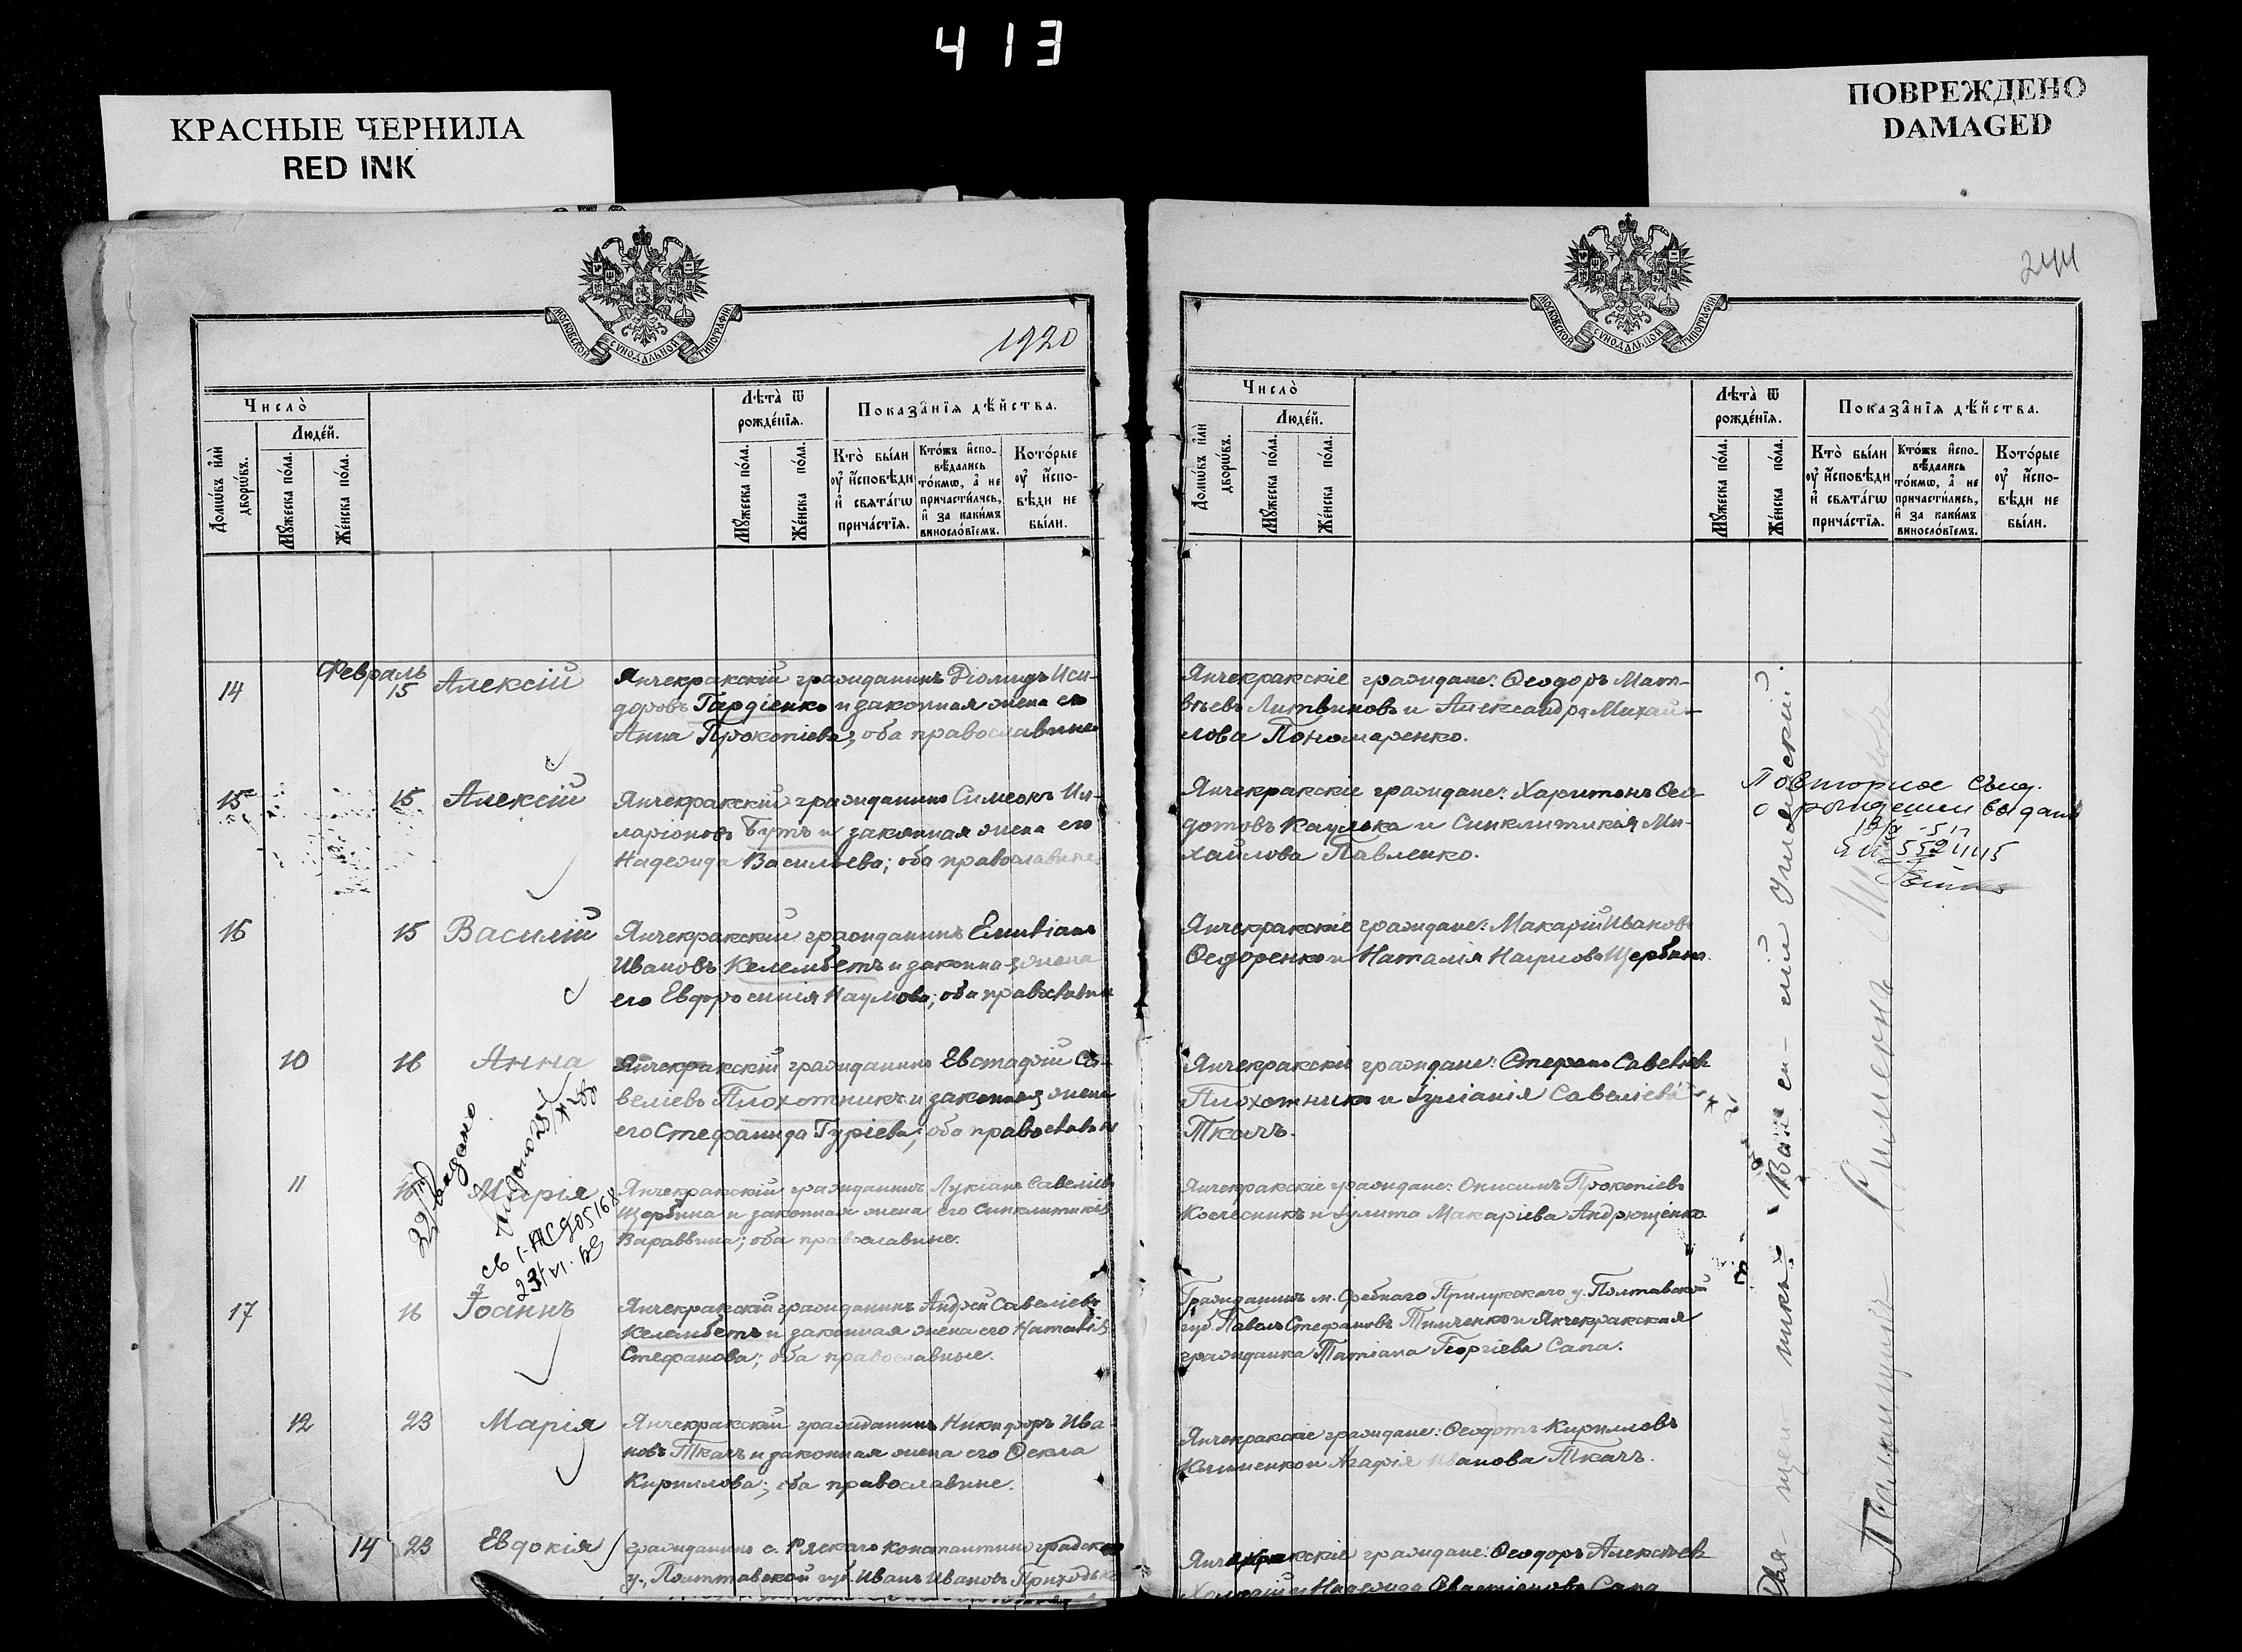 413
КРАСНЫЕ ЧЕРНИЛА
RED INK
ПОВРЕЖДЕНО
DAMAGED
МОСКОВСКОЙ СѴНОДАЛЬНОЙ ТИПОГРАФІИ
1920
Число̀
Людей.
Домѡвъ и҆лѝ дворѡвъ.
Мꙋжеска по́ла.
Же́нска по́ла.
Лѣта̀ ѿ рожде́нїѧ.
Мꙋжеска по́ла.
Же́нска по́ла.
Показа̑нїѧ дѣ́йства.
Кто̀ бы́ли
оу҆ и҆́сповѣди
и҆ свѧта́гѡ
прича́стїѧ.
Кто́жъ и҆спо-
вѣ́дались
то́кмѡ, а҆ не
причасти́лись,
и҆ за каки́мъ
виносло́вїемъ.
Кото́рые
оу҆ и҆спо-
вѣди не
бы́ли.
Февраль
14 15 Алексій Янчекракскій гражданинъ Діомидъ Иси-
доровъ Гардіенко и законная жена его
Анна Прокопіева; оба православные
15 15 Алексій Янчекракскій гражданинъ Симеонъ Ил-
ларіоновъ Бутъ и законная жена его
Надежда Васильева; оба православные
16 15 Василій Янчекракскій гражданинъ Емиліанъ
Ивановъ Келембетъ и законная жена
его Евфросинія Наумова; оба православн
10 16 Анна Янчекракскій гражданинъ Евстафій Са-
веліевъ Плохотникъ и законная жена
его Стефанида Гуріева; оба православн
11 16 Марія Янчекракскій гражданинъ Лукіанъ Савеліевъ
Щербина и законная жена его Синклитикія
Вараввина; оба православные.
выдано
17 16 Іоаннъ Янчекракскій гражданинъ Андрей Савеліевъ
Келембетъ и законная жена его Наталія
Стефанова; оба православные.
12 23 Марія Янчекракскій гражданинъ Никифоръ Ива
новъ Ткачъ и законная жена его Ѳекла
Кириллова; оба православные.
14 23 Евдокія гражданинъ с. Ряскаго Константиноградскаго
у., Полтавской губ. Иванъ Ивановъ Приходько
244
МОСКОВСКОЙ СѴНОДАЛЬНОЙ ТИПОГРАФІИ
Число̀
Людей.
Домѡвъ и҆лѝ дворѡвъ.
Мꙋжеска по́ла.
Же́нска по́ла.
Лѣта̀ ѿ рожде́нїѧ.
Мꙋжеска по́ла.
Же́нска по́ла.
Показа̑нїѧ дѣ́йства.
Кто̀ бы́ли
оу҆ и҆́сповѣди
и҆ свѧта́гѡ
прича́стїѧ.
Кто́жъ и҆спо-
вѣ́дались
то́кмѡ, а҆ не
причасти́лись,
и҆ за каки́мъ
виносло́вїемъ.
Кото́рые
оу҆ и҆спо-
вѣди не
бы́ли.
Янчекракскіе граждане: Ѳеодоръ Мат-
вѣевъ Литвиновъ и Александра Михай-
лова Пономаренко.
Янчекракскіе граждане: Харитонъ Ѳео-
дотовъ Каулька и Синклитикія Ми-
хайлова Павленко.
Повторное свид.
о рождении выдано
Янчекракскіе граждане: Макарій Ивановъ
Ѳедоренко и Наталія Наумова Щербина.
Янчекракскіе граждане: Стефанъ Савеліевъ
Плохотникъ и Іуліанія Савеліева
Ткачъ.
Янчекракскіе граждане: Онисимъ Прокопіевъ
Колесникъ и Іулита Макаріева Андрющенко
Гражданинъ м. Сребнаго Прилукскаго у. Полтавской
губ. Павелъ Стефановъ Тимченко и Янчекракская
гражданка Татіана Георгіева Сапа.
Янчекракскіе граждане: Ѳеодотъ Кирилловъ
Клименко и Марія Иванова Ткачъ.
Янчекракскіе граждане: Ѳеодоръ Алексѣевъ
Надежда Севастіанова Сапа
Свя- щен никъ Васи- лій
Псаломщикъ Симеонъ